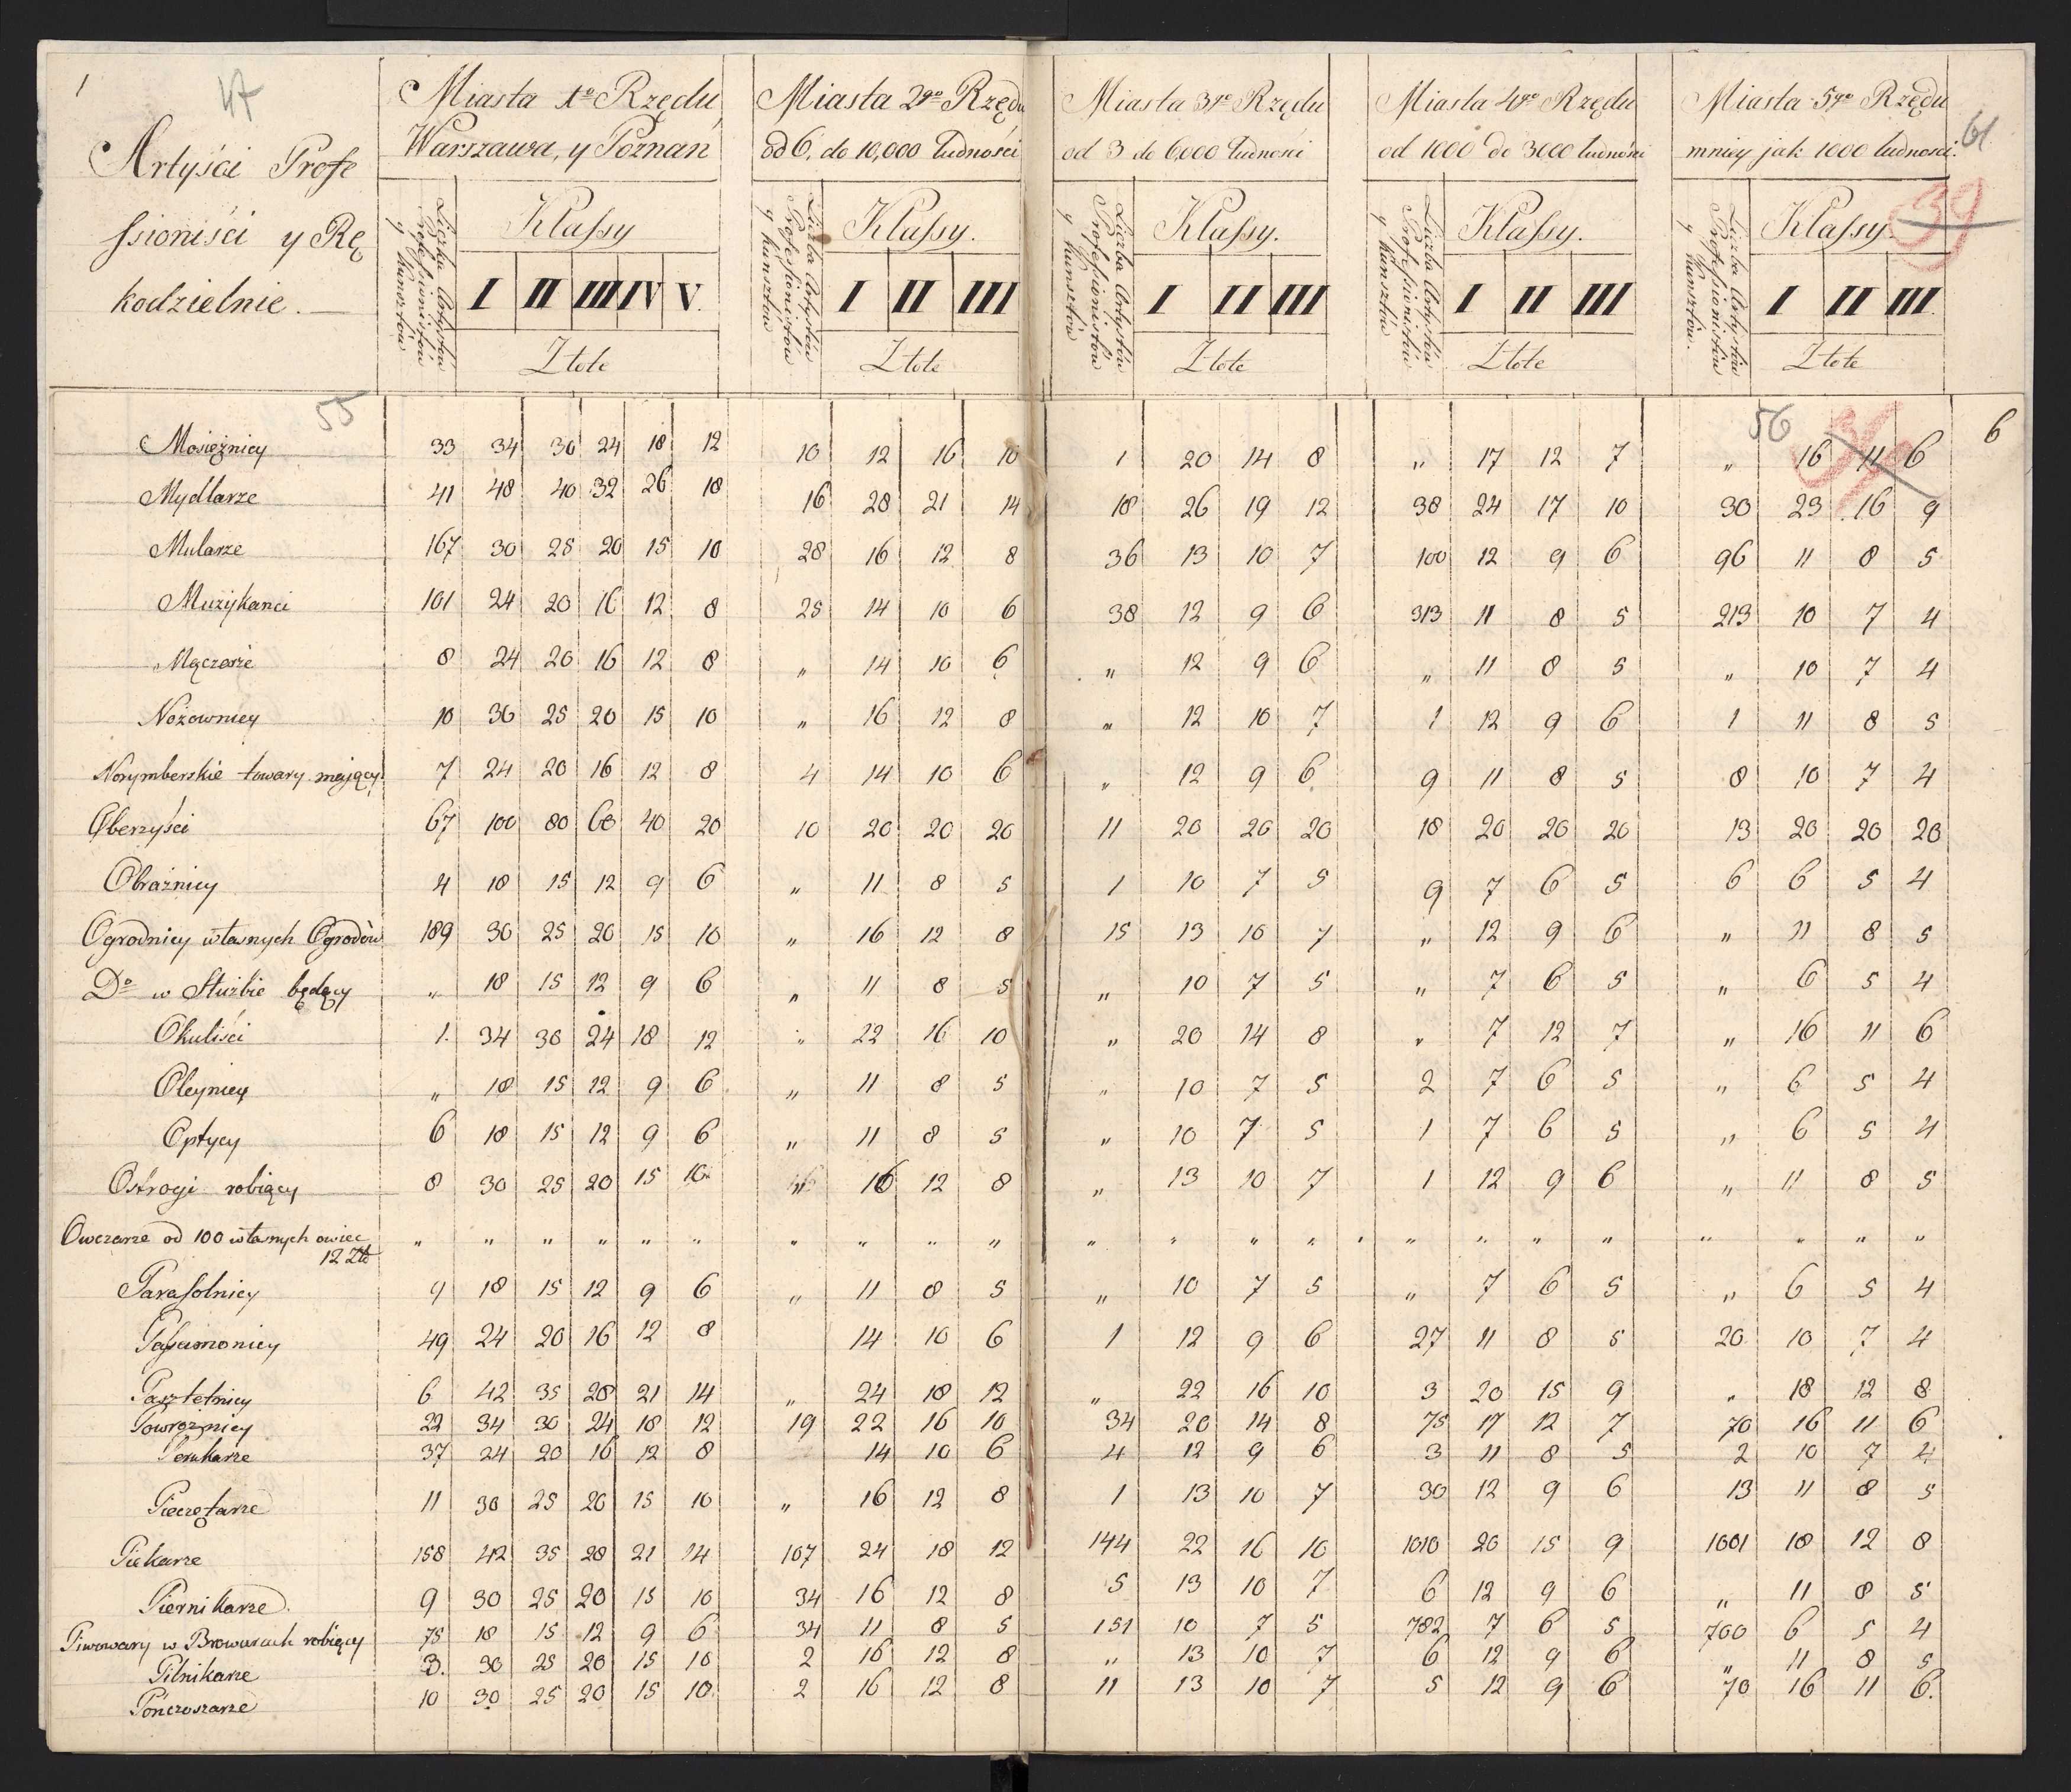 1
47
Artyści Profe
ssioniści y Rę
kodzielnie. —
Miasta 1o Rzędu,
Warszawa, y Poznań
Miasta 2go Rzędu
od 6. do 10,000 ludności
Miasta 3go Rzędu
od 3 do 6,000 ludności
Miasta 4go Rzędu
od 1000 do 3000 ludności
Miasta 5go Rzędu
mniey jak 1000 ludności.
61
39
Liczba Artystów Professionistów y Kunsztów
Klassy
I II III IV V.
Złote
Liczba Artystów Professionistów y Kunsztów
Klassy.
I II III
Złote
Liczba Artystów Professionistów y Kunsztów
Klassy.
I II III
Złote
Liczba Artystów Professionistów y Kunsztów
Klassy.
I II III
Złote
Liczba Artystów Professionistów y Kunsztów.
Klassy.
I II III.
Złote
55
56
6
Mosiężnicy 33 34 30 24 18 12 10 12 16 10 1 20 14 8 „ 17 12 7 „ 16 11 6
Mydlarze 41 48 40 32 26 18 16 28 21 14 18 26 19 12 38 24 17 10 30 23 16 9
Mularze 167 30 25 20 15 10 28 16 12 8 36 13 10 7 100 12 9 6 96 11 8 5
Muzykanci 101 24 20 16 12 8 25 14 10 6 38 12 9 6 313 11 8 5 213 10 7 4
Mączarze 8 24 20 16 12 8 „ 14 10 6 „ 12 9 6 „ 11 8 5 „ 10 7 4
Nożownicy 10 30 25 20 15 10 „ 16 12 8 „ 12 10 7 1 12 9 6 1 11 8 5
Norymberskie towary mający 7 24 20 16 12 8 4 14 10 6 „ 12 9 6 9 11 8 5 8 10 7 4
Oberzyści 67 100 80 60 40 20 10 20 20 20 11 20 20 20 18 20 20 20 13 20 20 20
Obraźnicy 4 18 15 12 9 6 „ 11 8 5 1 10 7 5 9 7 6 5 6 6 5 4
Ogrodnicy własnych Ogrodów 189 30 25 20 15 10 „ 16 12 8 15 13 10 7 „ 12 9 6 „ 11 8 5
Do w Służbie będący „ 18 15 12 9 6 „ 11 8 5 „ 10 7 5 „ 7 6 5 „ 6 5 4
Okuliści 1. 34 30 24 18 12 „ 22 16 10 „ 20 14 8 „ 7 12 7 „ 16 11 6
Oleynicy „ 18 15 12 9 6 „ 11 8 5 „ 10 7 5 2 7 6 5 „ 6 5 4
Optycy 6 18 15 12 9 6 „ 11 8 5 „ 10 7 5 1 7 6 5 „ 6 5 4
Ostrogi robiący 8 30 25 20 15 10 „ 16 12 8 „ 13 10 7 1 12 9 6 „ 11 8 5
Owczarze od 100 własnych owiec „ „ „ „ „ „ „ „ „ „ „ „ „ „ „ „ „ „ „ „ „ „
12 Złt
Parasolnicy 9 18 15 12 9 6 „ 11 8 5 „ 10 7 5 „ 7 6 5 „ 6 5 4
Passamonicy 49 24 20 16 12 8 14 10 6 1 12 9 6 27 11 8 5 20 10 7 4
Pasztetnicy 6 42 35 28 21 14 „ 24 18 12 „ 22 16 10 3 20 15 9 „ 18 12 8
Powroźnicy 22 34 30 24 18 12 19 22 16 10 34 20 14 8 75 17 12 7 70 16 11 6
Perukarze 37 24 20 16 12 8 14 10 6 4 12 9 6 3 11 8 5 2 10 7 4
Pieczętarze 11 30 25 20 15 10 „ 16 12 8 1 13 10 7 30 12 9 6 13 11 8 5
Piekarze 158 42 35 28 21 14 107 24 18 12 144 22 16 10 1010 20 15 9 1001 18 12 8
Piernikarze. 9 30 25 20 15 10 34 16 12 8 5 13 10 7 6 12 9 6 „ 11 8 5
Piwowary w Browarach robiący 75 18 15 12 9 6 34 11 8 5 151 10 7 5 782 7 6 5 700 6 5 4
Pilnikarze 3. 30 25 20 15 10 2 16 12 8 „ 13 10 7 6 12 9 6 „ 11 8 5
Pończoszarze 10 30 25 20 15 10 2 16 12 8 11 13 10 7 5 12 9 6 70 16 11 6.